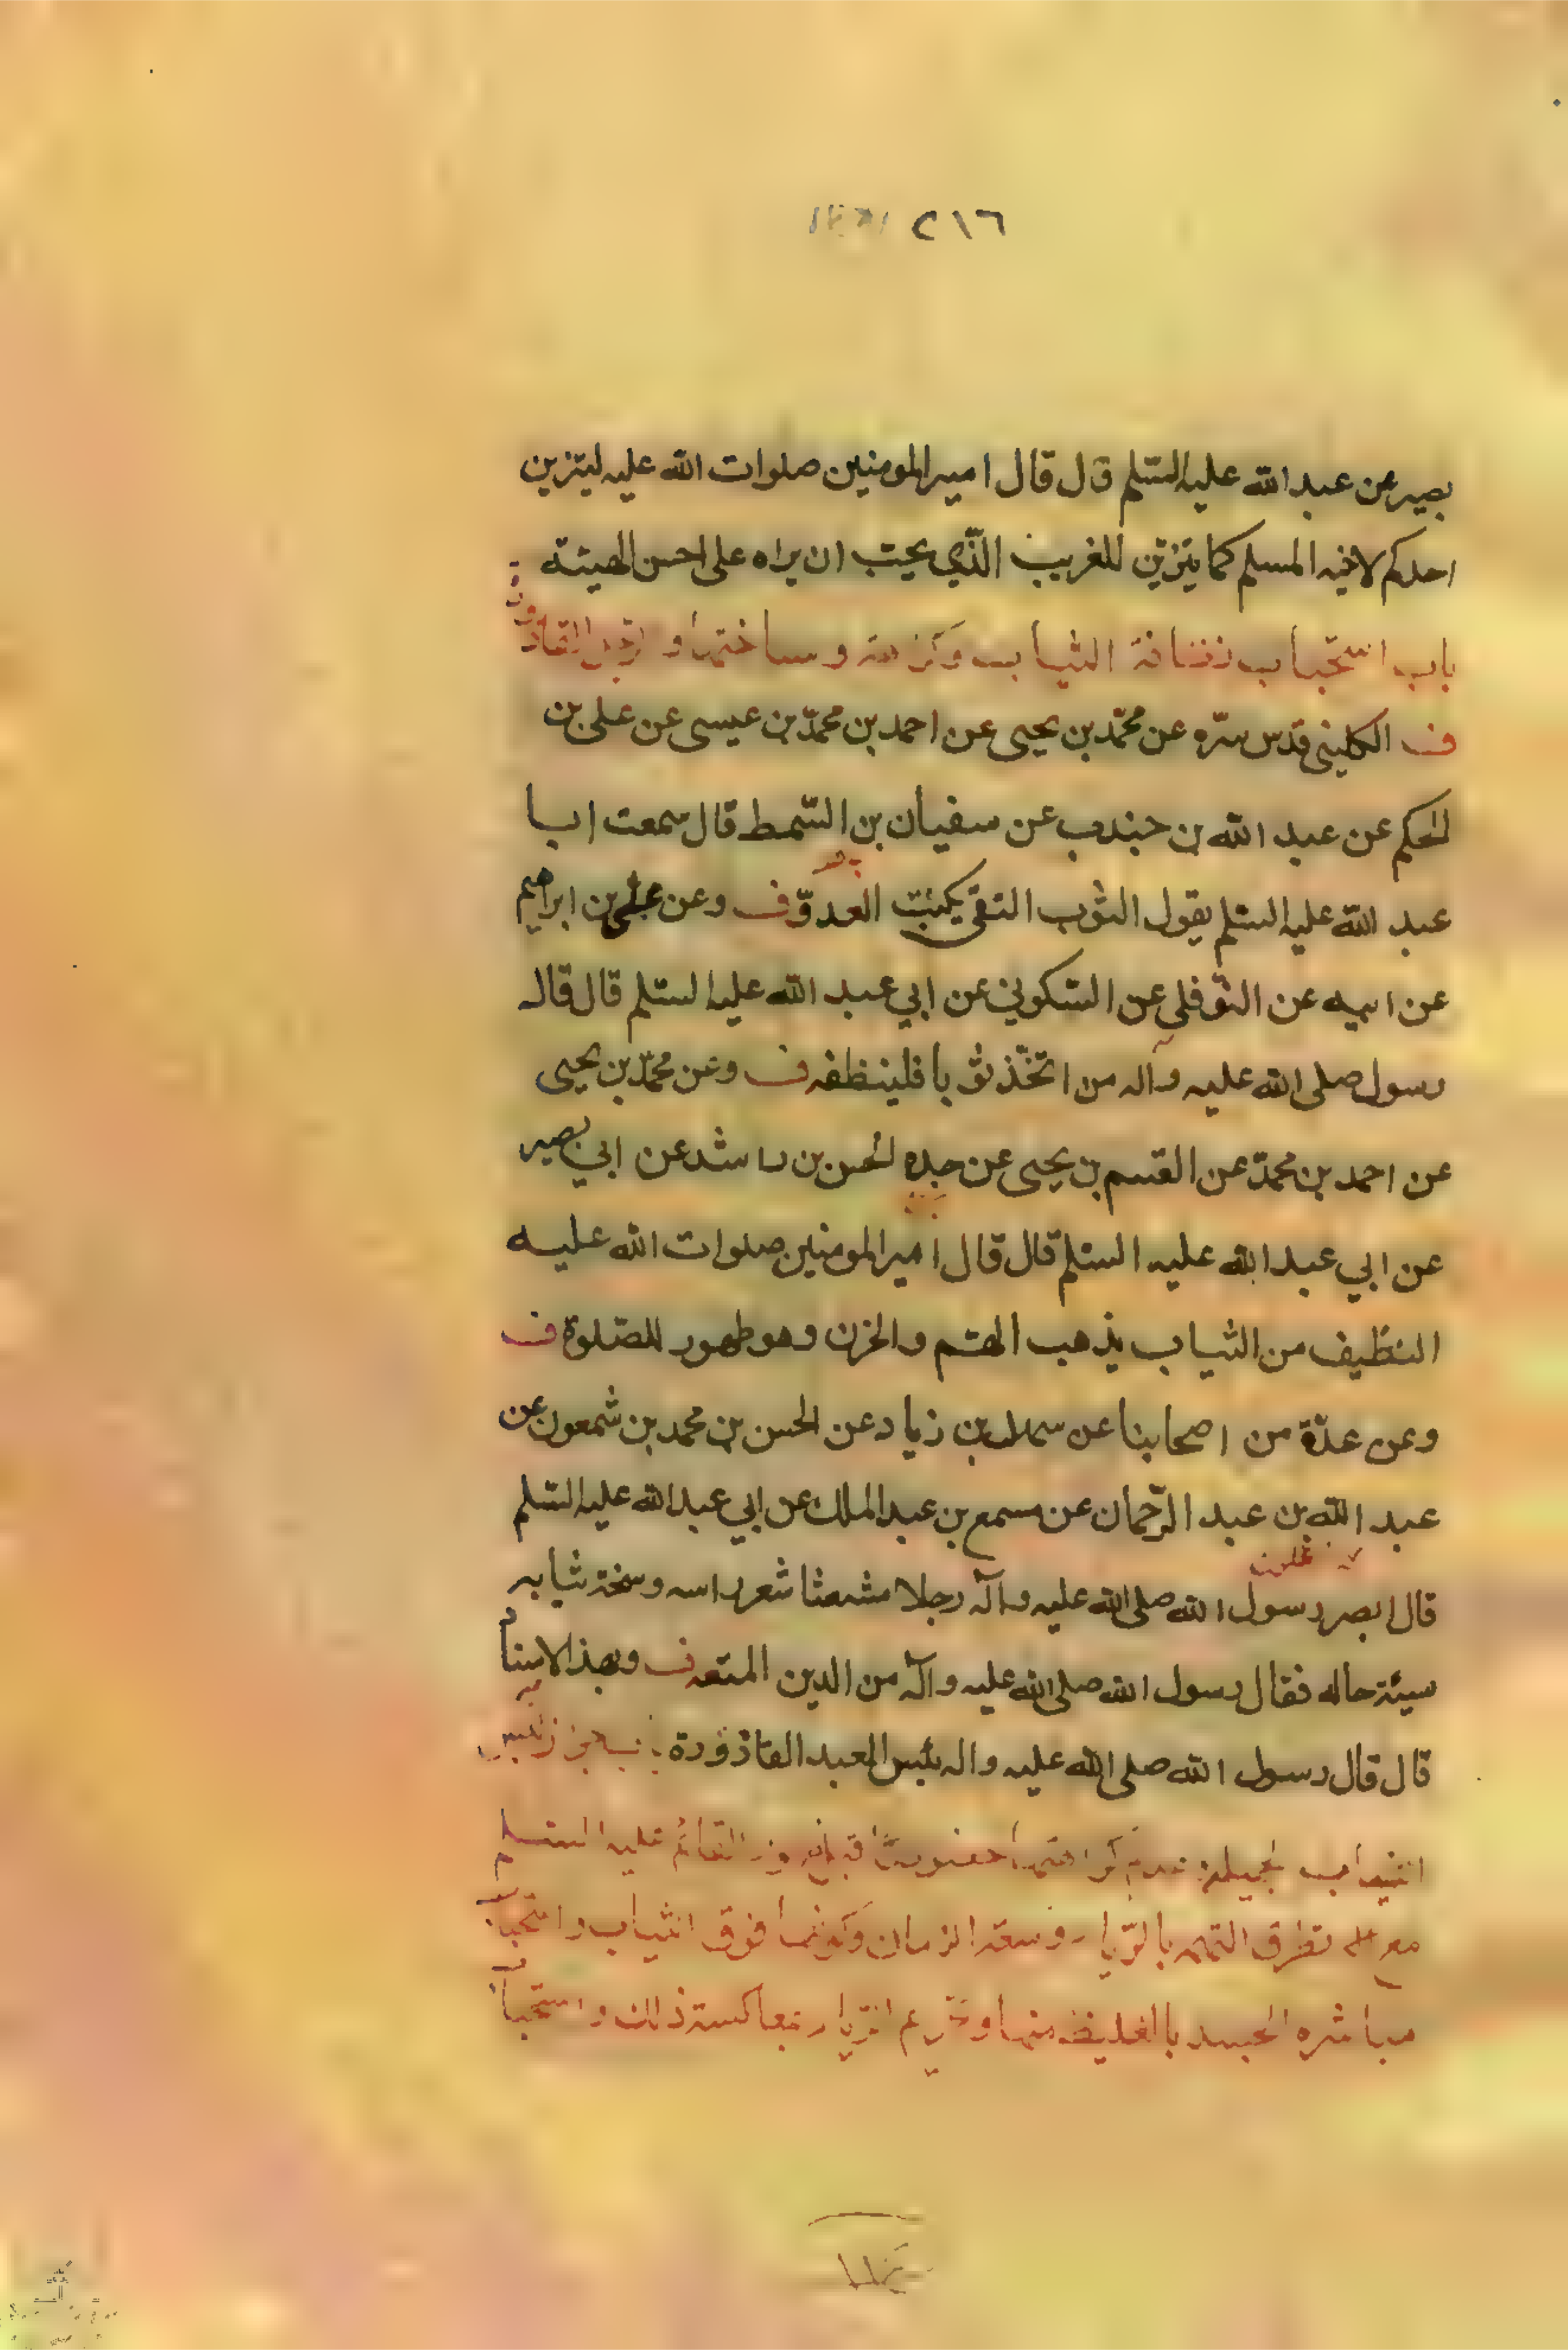 ٢١٦
بصير عن عبد الله عليه السّلم قال قال امير المومنين صلوات الله عليه ليتزين
احدكم لاخيه المسلم كما يتزيّن للغريب الّذي يحبّ ان يراه على احسن الهيئة
باب استحباب نظافة الثياب وكراهة وساختها و
ف الكليني قدس سّره عن محمّد بن يحيى عن احمد بن محمّد بن عيسى عن على بن
الحكم عن عبد الله بن جندب عن سفيان بن السّمط قال سمعت ابا
عبد الله عليه السّلم يقول الثوب النقى يكبت العدوّ ف وعن على بن ابراهيم
عن ابيه عن النّوفلي عن السّكوني عن ابي عبد الله عليه السّلم قال قال
رسول صلى الله عليه وآله من اتخّذ ثوبا فلينظفه ف وعن محمّد بن يحيى
عن احمد بن محمّد عن القسم بن يحيى عن جده الحسن بن راشد عن ابي بصير
عن ابي عبد الله عليه السّلم قال قال امير المومنين صلوات الله عليه
النظيف من الثياب يذهب الهّم والحزن وهو طهور للصّلوة ف
وعن عدّة من اصحابنا عن سهل بن زياد عن الحسن بن محمد بن شمعون عن
عبد الله بن عبد الرّحمان عن مسمع بن عبد الملك عن ابي عبد الله عليه السّلم
قال ابصر رسول الله صلى الله عليه وآله رجلا مشعثا شعر راسه وسخة ثيابه
سيئة حاله فقال رسول الله صلى الله عليه وآله من الدين المتعه ف وبهذ الاسناد
قال قال رسول الله صلى الله عليه واله بئس العبد القاذورة
الثياب الجميلة عدم كراهتها القائم عليه السلم
تطرق التهمة بالرّيا وسعة الزمان وكونها فوق الثياب واستحباب
مباشرة الجسد بالغليظ منها وتحريم الرّيا بمعاكسة ذلك واستحباب